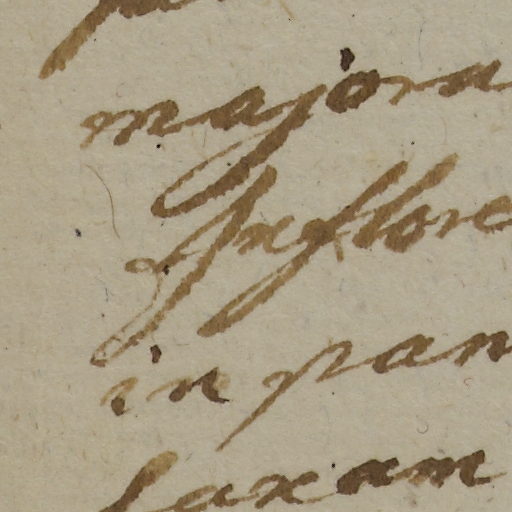 majora
Inflore
in pan
laxam